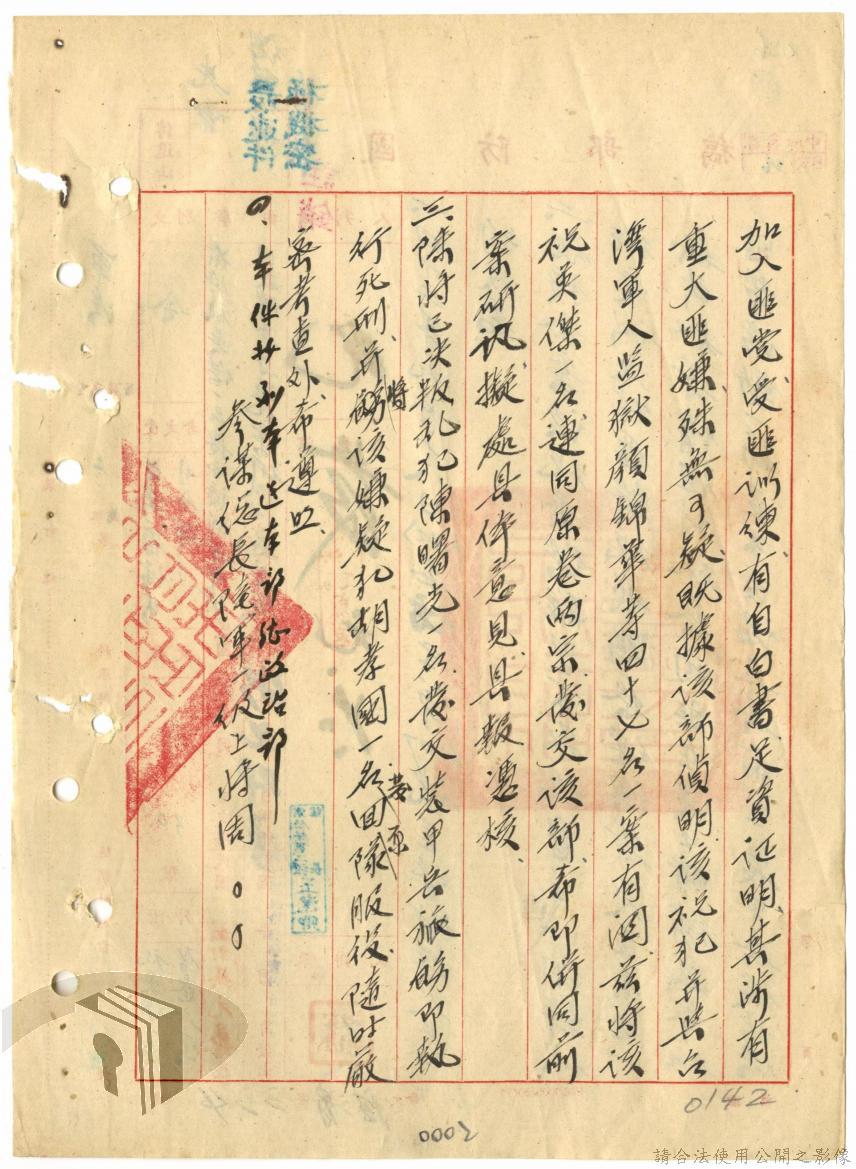 極機密
最速件
加入匪党受匪訓練、有自白書足資证明、其涉有
重大匪嫌、殊無可疑、既據该部偵明、该祝犯并與台
灣軍人监獄顏錦華等四十七名一案有润、兹將该
祝英傑一名連同原卷兩宗、發交该部、希即併同前
案研訊、擬處具体意見、具報憑核、
三、陳將已决叛乱犯陳曙光一名、發交裝甲兵旅飭即執
行死刑、并將该嫌疑犯胡孝國一名發原回隊服役、隨时嚴
密考查外、希遵照、
四、本件抄副本送本部总政治部
參谋總長陸軍一级上將周〇〇
0142
0002
請合法使用公開之影像